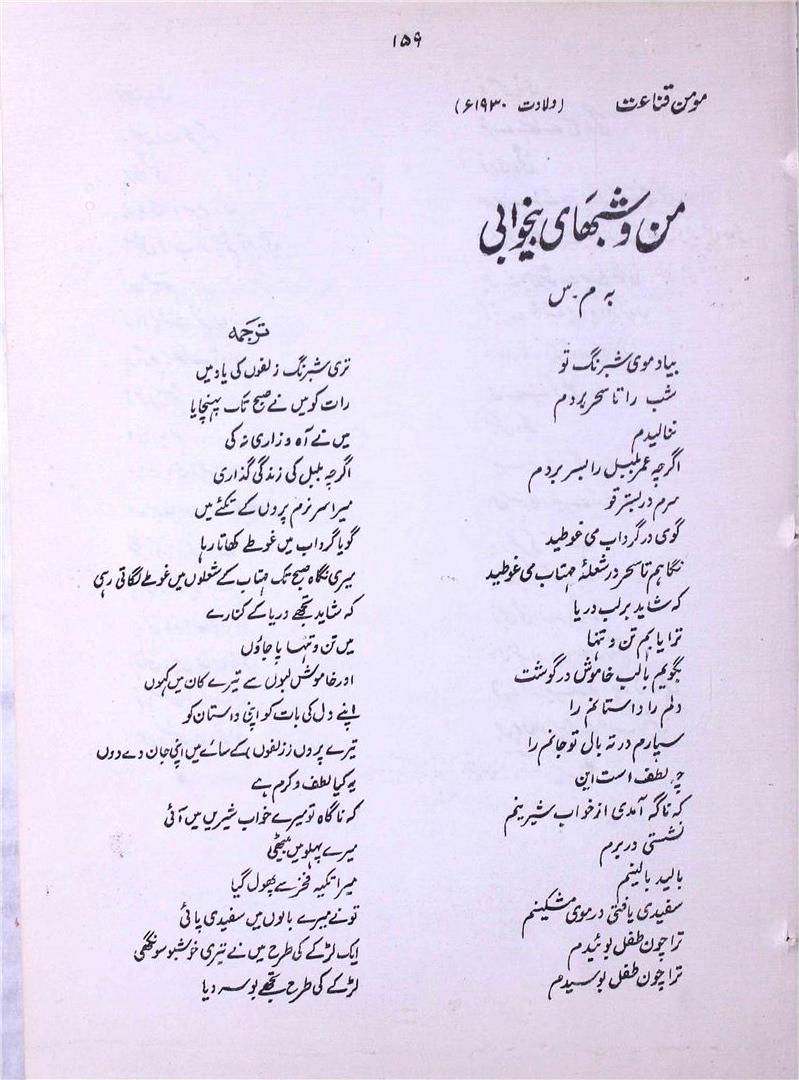 ۱۵۹
مومن قناعت (ولادت ۱۹۳۰ء)
من و شبهای بیخوابی
به م.س
بیاد موی شبرنگ تو
شب را تا سحر بردم
ننالیدم
اگرچہ عمر بلبل را بسر بردم
سرم در بستر قو
گوی در گرداب می غوطید
نگاہم تا سحر در شعلۂ مہتاب می غوطید
کہ شاید بر لب دریا
ترا یابم تن و تنہا
بگویم بالب خاموش در گوشت
دلم را داستانم را
سپارم در تہ بالی تو جانم را
چہ لطف است این
کہ ناگہ آمدی از خواب شیرینم
نشستی در برم
بالید بالینم
سفیدی یافتی در موی مشکینم
ترا چون طفل بوئیدم
ترا چون طفل بوسیدم
ترجمہ
تری شبرنگ زلفوں کی یاد میں
رات کو میں نے صبح تک پہنچایا
میں نے آہ و زاری نہ کی
اگرچہ بلبل کی زندگی گذاری
میرا سر نرم پروں کے تکئے میں
گویا گرداب میں غوطے کھاتا رہا
میری نگاہ صبح تک مہتاب کے شعلوں میں غوطے لگاتی رہی
کہ شاید تجھے دریا کے کنارے
میں تن و تنہا پا جاؤں
اور خاموش لبوں سے تیرے کان میں کہوں
اپنے دل کی بات کو اپنی داستان کو
تیرے پروں (زلفوں) کے سائے میں اپنی جان دے دوں
یہ کیا لطف و کرم ہے
کہ ناگاہ تو میرے خواب شیریں میں آئی
میرے پہلو میں بیٹھی
میرا تکیہ فخر سے پھول گیا
تونے میرے بالوں میں سفیدی پائی
ایک لڑکے کی طرح میں نے تیری خوشبو سونگھی
لڑکے کی طرح تجھے بوسہ دیا